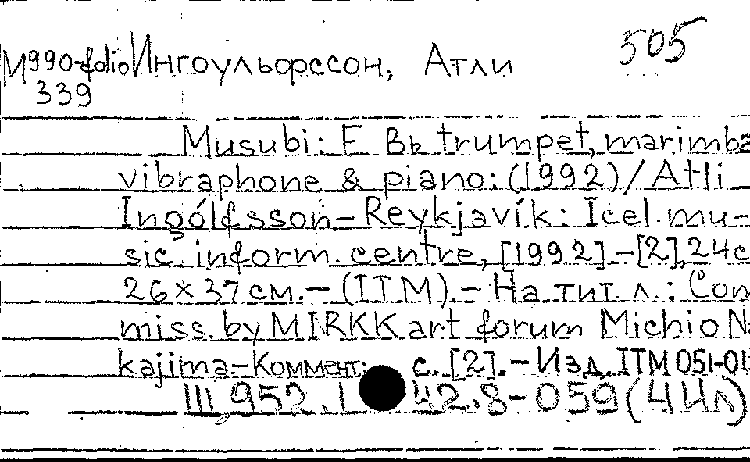 505
М990-folio Ингоульфссон, Атли
339
Musubi: F Bb trumpet, marimba
vibraphone & piano: (1992) / Atli
Ingólfsson – Reykjavík: Icel. mu-
sic. inform. centre, [1992]. – [2], 24 с
26×37 см. – (ITM). – На тит. л.: Com
miss. by MIRKK art forum Michio N
kajima – Коммент: с. [2]. – Изд. ITM 051-01
III, 952. 1 42.8-059 (4Ил)